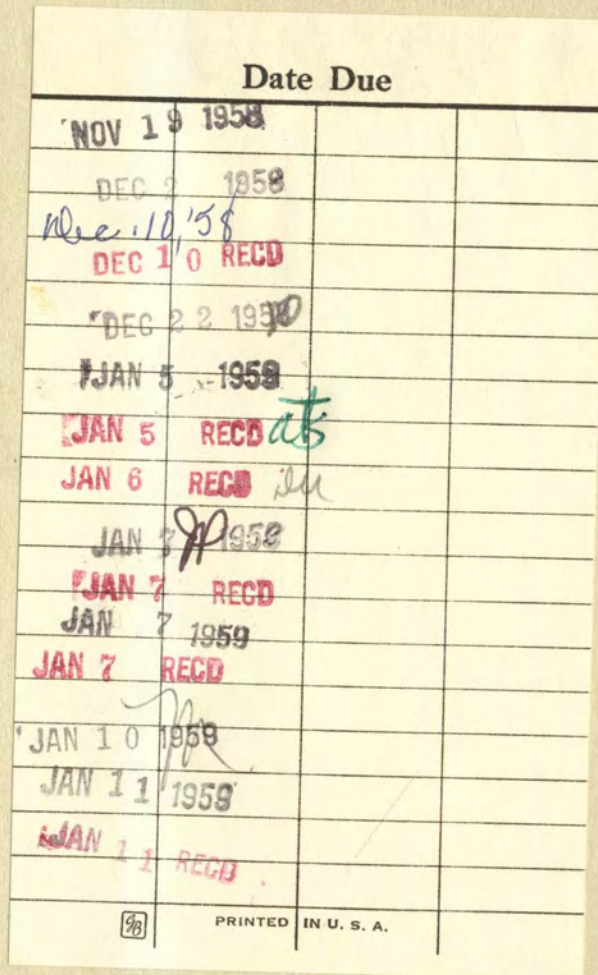 Date Due
NOV 19 1958
DEC 2 1958
Dec. 10, '58
DEC 10 RECD
DEC 22 1958
JAN 5 1959
JAN 5 RECD
JAN 6 RECD
JAN 7 1959
JAN 7 RECD
JAN 7 1959
JAN 7 RECD
JAN 10 1959
JAN 11 1959
JAN 11 RECD
PRINTED IN U. S. A.